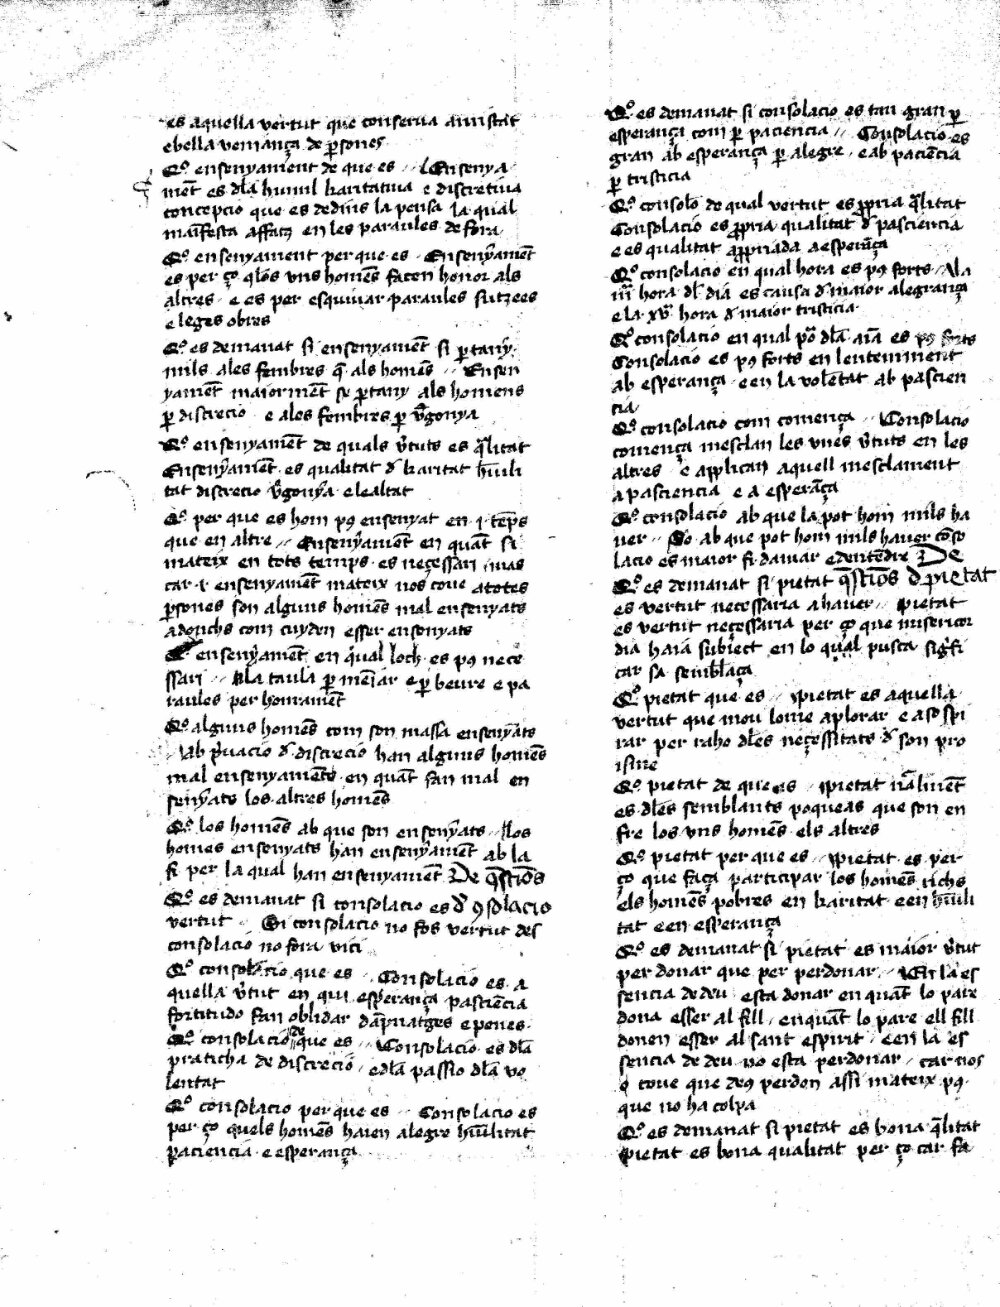 es aquella vertut que conserva amistat
e bella veniança de p̲sones
Q.º ensenyament de que es · Ensenya
me̅t es dl̅a humil karitativa e discretiva
concepcio que es dedins la pensa la qual
en les paraules de fora
Q.º ensenyament per que es · Ensenyame̅t
es per ço q̅ los uns home̅s facen honor als
altres · e es per esquivar paraules sutzees
e leges obres
Q.º es demanat si ensenyame̅t si p̲tany
mils a les fembres q̅ als home̅s · Ensen
yame̅t maiorme̅t se p̲tany als homens
p̲ discrecio · e a les fembres p̲ v̅gonya
Q.º ensenyame̅t de quals v̅tuts es q̅litat
Ensenyame̅t es qualitat d̅ karitat hu̅ili
tat discrecio v̅gonya e lealtat
Q.º per que es hom pꝰ ensenyat en ·i· te̅ps
que en altre · Ensenyame̅t en qua̅t si
mateix en tots temps es necessari mas
car ·i· ensenyame̅t mateix nos cove a totes
p̲sones son alguns home̅s mal ensenyats
adonchs com cuyden esser ensenyats
Q.º ensenyame̅t en qual loch es pꝰ nece
ssari · A la taula p̲ meniar e p̲ beure e pa
raules per honrame̅t
Q.º alguns home̅s com son massa ensenyats
Ab p̲vacio d̅ discrecio han alguns home̅s
mal ensenyame̅ts en qua̅t fan mal en
senyats los altres home̅s
Q.º los home̅s ab que son ensenyats · Los
homens ensenyats han ensenyame̅t ab la
fi per la qual han ensenyame̅t De q̅stio̅s
Q.º es demanat si consolacio es d̅ ꝯsolacio
vertut · Si consolacio no fos vertut des
consolacio no fora vici
Q.º consolacio que es · Consolacio es a
quella v̅tut en qui espera̅ça pascie̅cia
fortitudo fan oblidar da̅pnatges e penes
Q.º consolacio de que es · Consolacio es dl̅a
praticha de discrecio · e dl̅a passio dl̅a vo
lentat
Q.º consolacio per que es · Consolacio es
per ço quels home̅s haien alegre hu̅ilitat
paciencia e esperança
Q.º es demanat si consolacio es tan gran p̲
esperança com p̲ paciencia · Consolacio es
gran ab esperança p̲ alegre · e ab pacie̅cia
p̲ tristicia
Q.º consolo de qual vertut es p̲pria q̅litat
Consolacio es p̲pria qualitat d̅ pasciencia
e es qualitat ap̲priada a espera̅ça
Q.º consolacio en qual hora es pꝰ forts · A la
iii̅ hora dl̅ dia es causa d̅ maior alegrança
e la xv̅ hora d̅ maior tristicia
Q.º consolacio en qual p̲t dl̅a ai̅a es pꝰ forts
Consolacio es pꝰ forts en lenteniment
ab esperança · e en la vole̅tat ab pascien
cia
Q.º consolacio com comença · Consolacio
comença mesclan les unes v̅tuts en les
altres · e applican aquell mesclament
a pasciencia e a espera̅ça
Q.º consolacio ab que la pot hom mils ha
ver · So ab que pot hom mils haver co̅so
lacio es maior fi damar e dente̅dre De
Q.º es demanat si pietat q̅stio̅s d̅ pietat
es vertut necessaria a haver · Pietat
es vertut neçessaria per ço que misericor
dia haia subiect en lo qual pusca sig̅fi
car sa sembla̅ça
Q.º pietat que es · Pietat es aquella
vertut que mou lome a plorar e a sospi
rar per raho dl̅es neçessitats d̅ son pro
isme
Q.º pietat de que es · Pietat n̅alme̅t
es dl̅es semblants poqueas que son en
fre los uns homens els altres
Q.º pietat per que es · Pietat es per
ço que faça participar los home̅s richs
els home̅s pobres en karitat e en hu̅ili
tat e en esperança
Q.º es demanat si pietat es maior v̅tut
per donar que per perdonar · En la es
sencia de deu esta donar en qua̅t lo pare
dona esser al fill · en qua̅t lo pare ell fill
donen esser al sant espirit · e en la es
sencia de deu no esta perdonar · car nos
q̅ cove que deꝰ perdon assi mateix pꝰ
que no ha colpa
Q.º es demanat si pietat es bona q̅litat
Pietat es bona qualitat per ço car fa